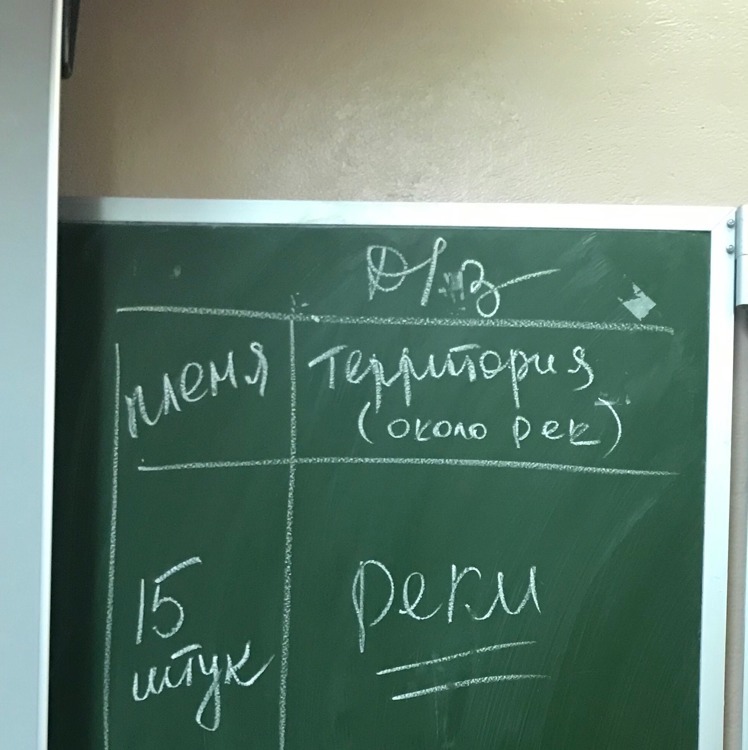 Д/з
племя
территория
(около рек)
15
штук
реки